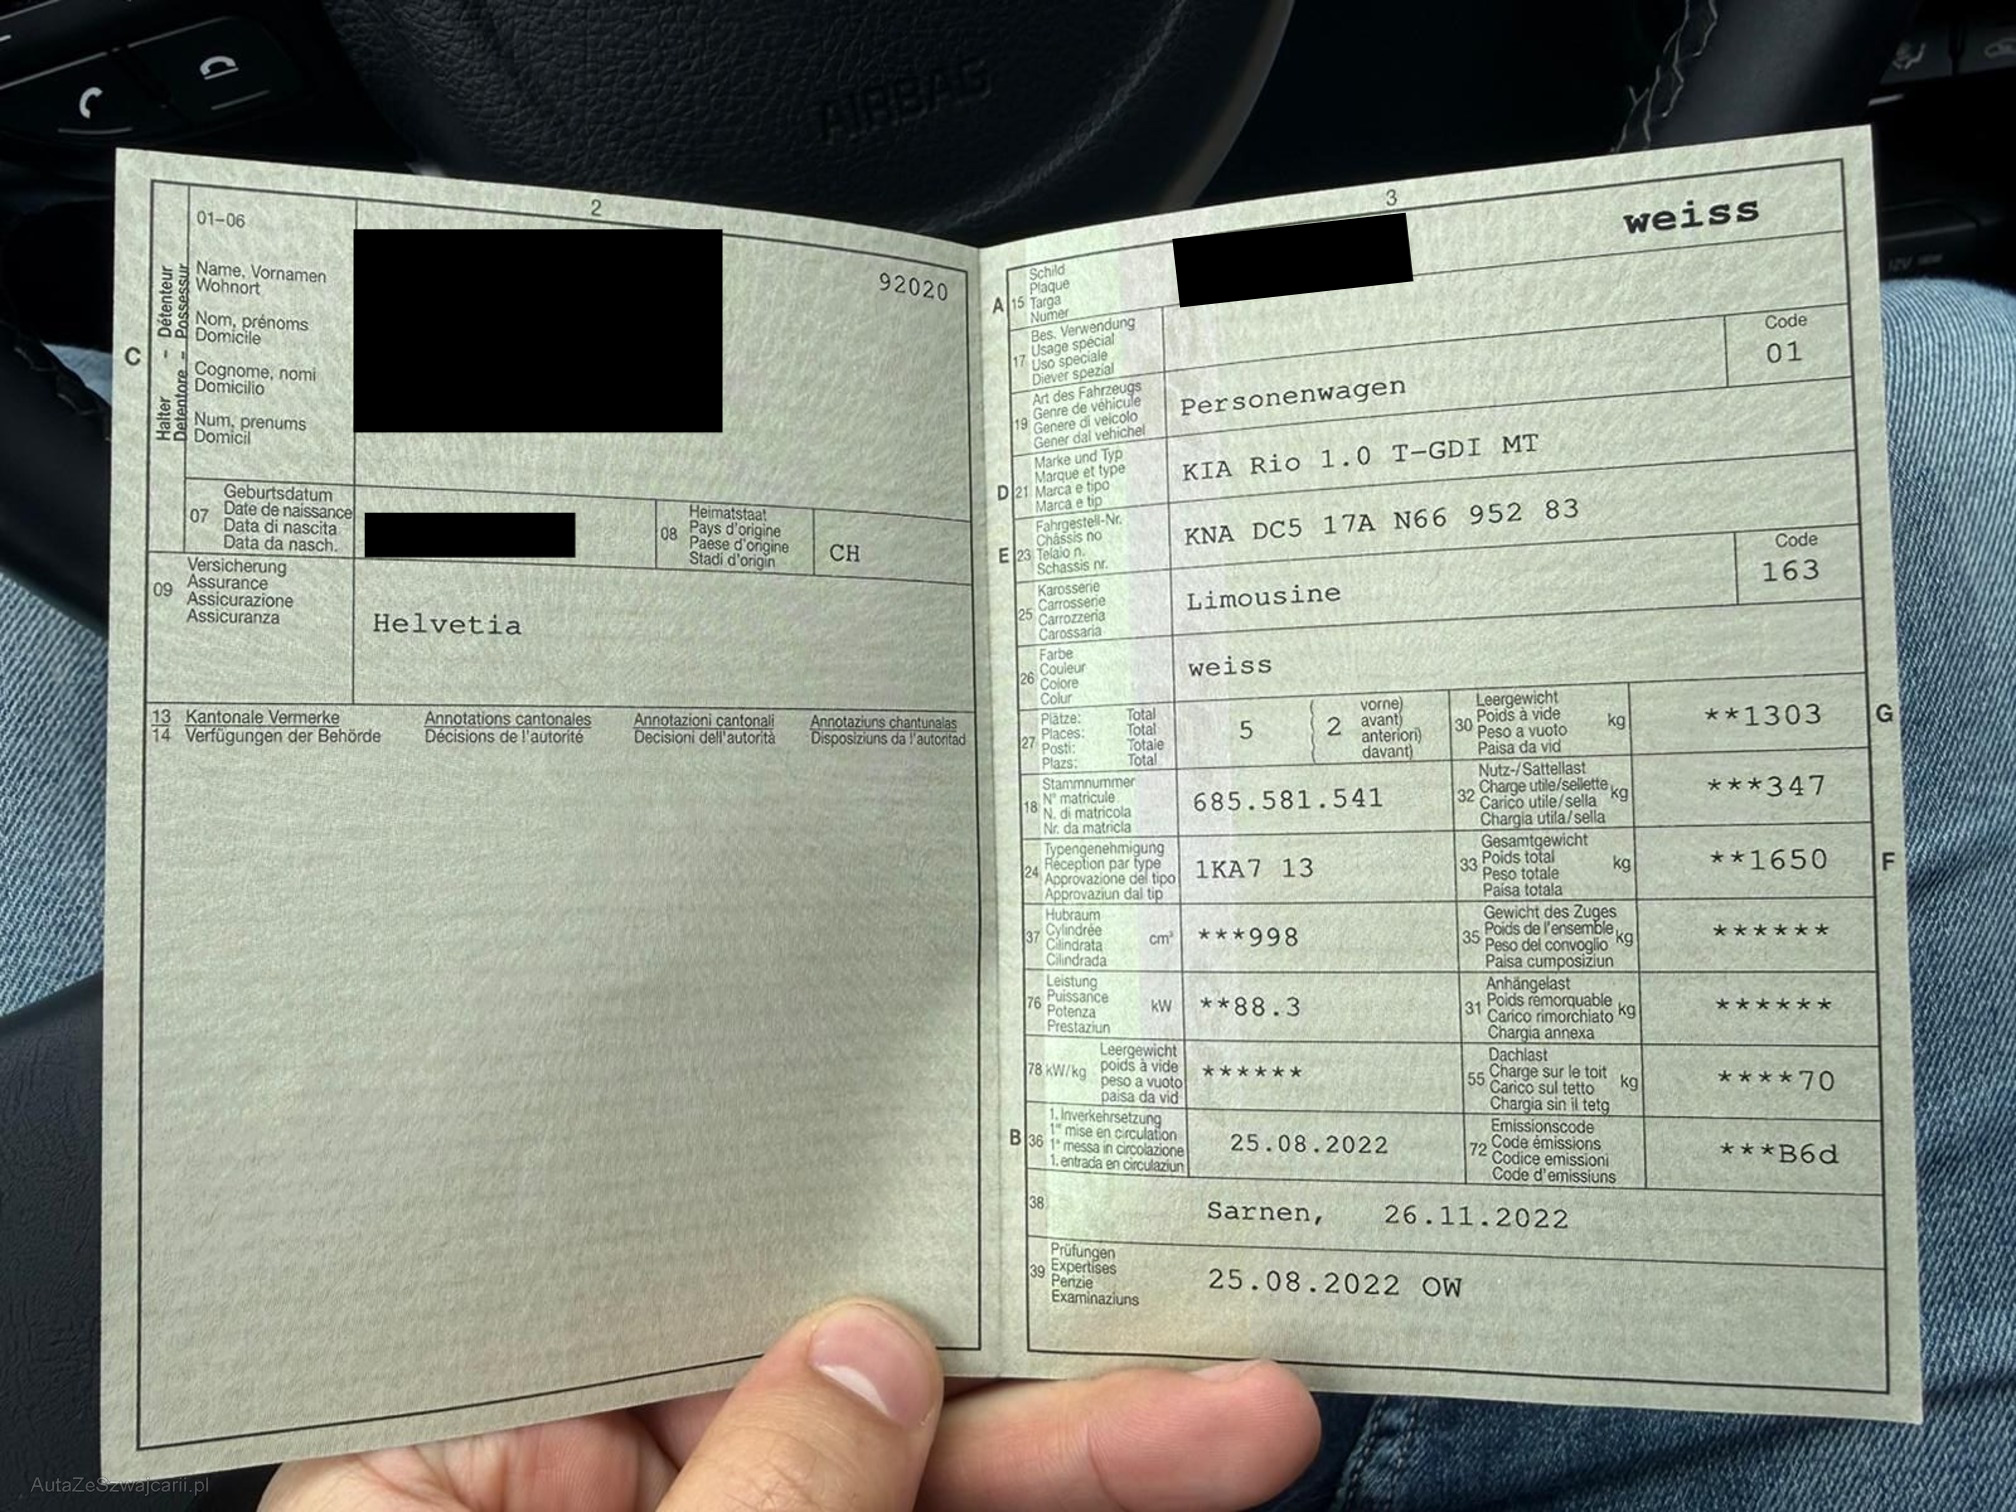 AIRBAG
2
01-06
Name, Vornamen
Wohnort
Nom, prénoms
Domicile
Cognome, nomi
Domicilio
Num, prenums
Domicil
92020
C
Halter - Détenteur
Detentore - Possessur
07
Geburtsdatum
Date de naissance
Data di nascita
Data da nasch.
08
Heimatstaat
Pays d'origine
Paese d'origine
Stadi d'origin
CH
09
Versicherung
Assurance
Assicurazione
Assicuranza
Helvetia
13 Kantonale Vermerke Annotations cantonales Annotazioni cantonali Annotaziuns chantunalas
14 Verfügungen der Behörde Décisions de l'autorité Decisioni dell'autorità Disposiziuns da l'autoritad
3
weiss
A 15
Schild
Plaque
Targa
Numer
17
Bes. Verwendung
Usage spécial
Uso speciale
Diever spezial
Code
01
19
Art des Fahrzeugs
Genre de véhicule
Genere di veicolo
Gener dal vehichel
Personenwagen
D 21
Marke und Typ
Marque et type
Marca e tipo
Marca e tip
KIA Rio 1.0 T-GDI MT
E 23
Fahrgestell-Nr.
Châssis no
Telaio n.
Schassis nr.
KNA DC5 17A N66 952 83
25
Karosserie
Carrosserie
Carrozzeria
Carossaria
Limousine
Code
163
26
Farbe
Couleur
Colore
Colur
weiss
27
Plätze: Total
Places: Total
Posti: Totale
Plazs: Total
5
2
vorne)
avant)
anteriori)
davant)
30
Leergewicht
Poids à vide
Peso a vuoto
Paisa da vid
kg
**1303
G
18
Stammnummer
N° matricule
N. di matricola
Nr. da matricla
685.581.541
32
Nutz-/Sattellast
Charge utile/sellette
Carico utile/sella
Chargia utila/sella
kg
***347
24
Typengenehmigung
Réception par type
Approvazione del tipo
Approvaziun dal tip
1KA7 13
33
Gesamtgewicht
Poids total
Peso totale
Paisa totala
kg
**1650
F
37
Hubraum
Cylindrée
Cilindrata
Cilindrada
cm³
***998
35
Gewicht des Zuges
Poids de l'ensemble
Peso del convoglio
Paisa cumposiziun
kg
******
76
Leistung
Puissance
Potenza
Prestaziun
kW
**88.3
31
Anhängelast
Poids remorquable
Carico rimorchiato
Chargia annexa
kg
******
78 kW/kg
Leergewicht
poids à vide
peso a vuoto
paisa da vid
******
55
Dachlast
Charge sur le toit
Carico sul tetto
Chargia sin il tetg
kg
****70
B 36
1. Inverkehrsetzung
1re mise en circulation
1a messa in circolazione
1. entrada en circulaziun
25.08.2022
72
Emissionscode
Code émissions
Codice emissioni
Code d'emissiuns
***B6d
38
Sarnen, 26.11.2022
39
Prüfungen
Expertises
Perizie
Examinaziuns
25.08.2022 OW
AutaZeSzwajcarii.pl